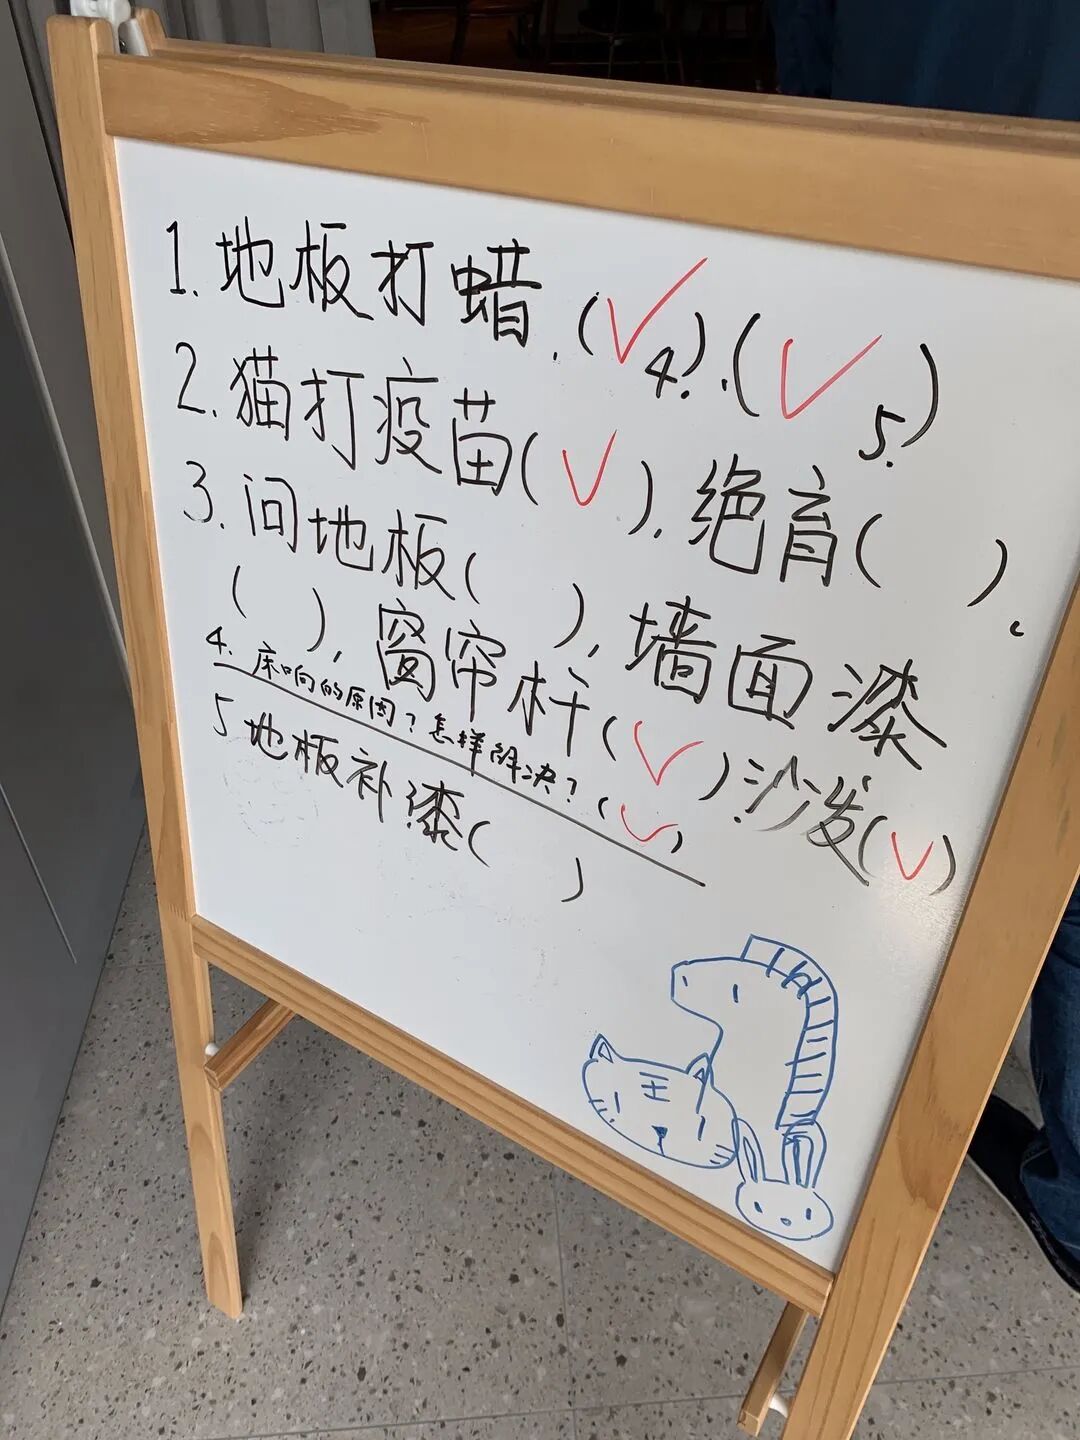 1.地板打蜡.(✓4.).(✓5.)
2.猫打疫苗(✓).绝育( ).
3.问地板( ),墙面漆
( ),窗帘杆(✓).沙发(✓)
4.床响的原因?怎样解决?(✓)
5 地板补漆( )
王